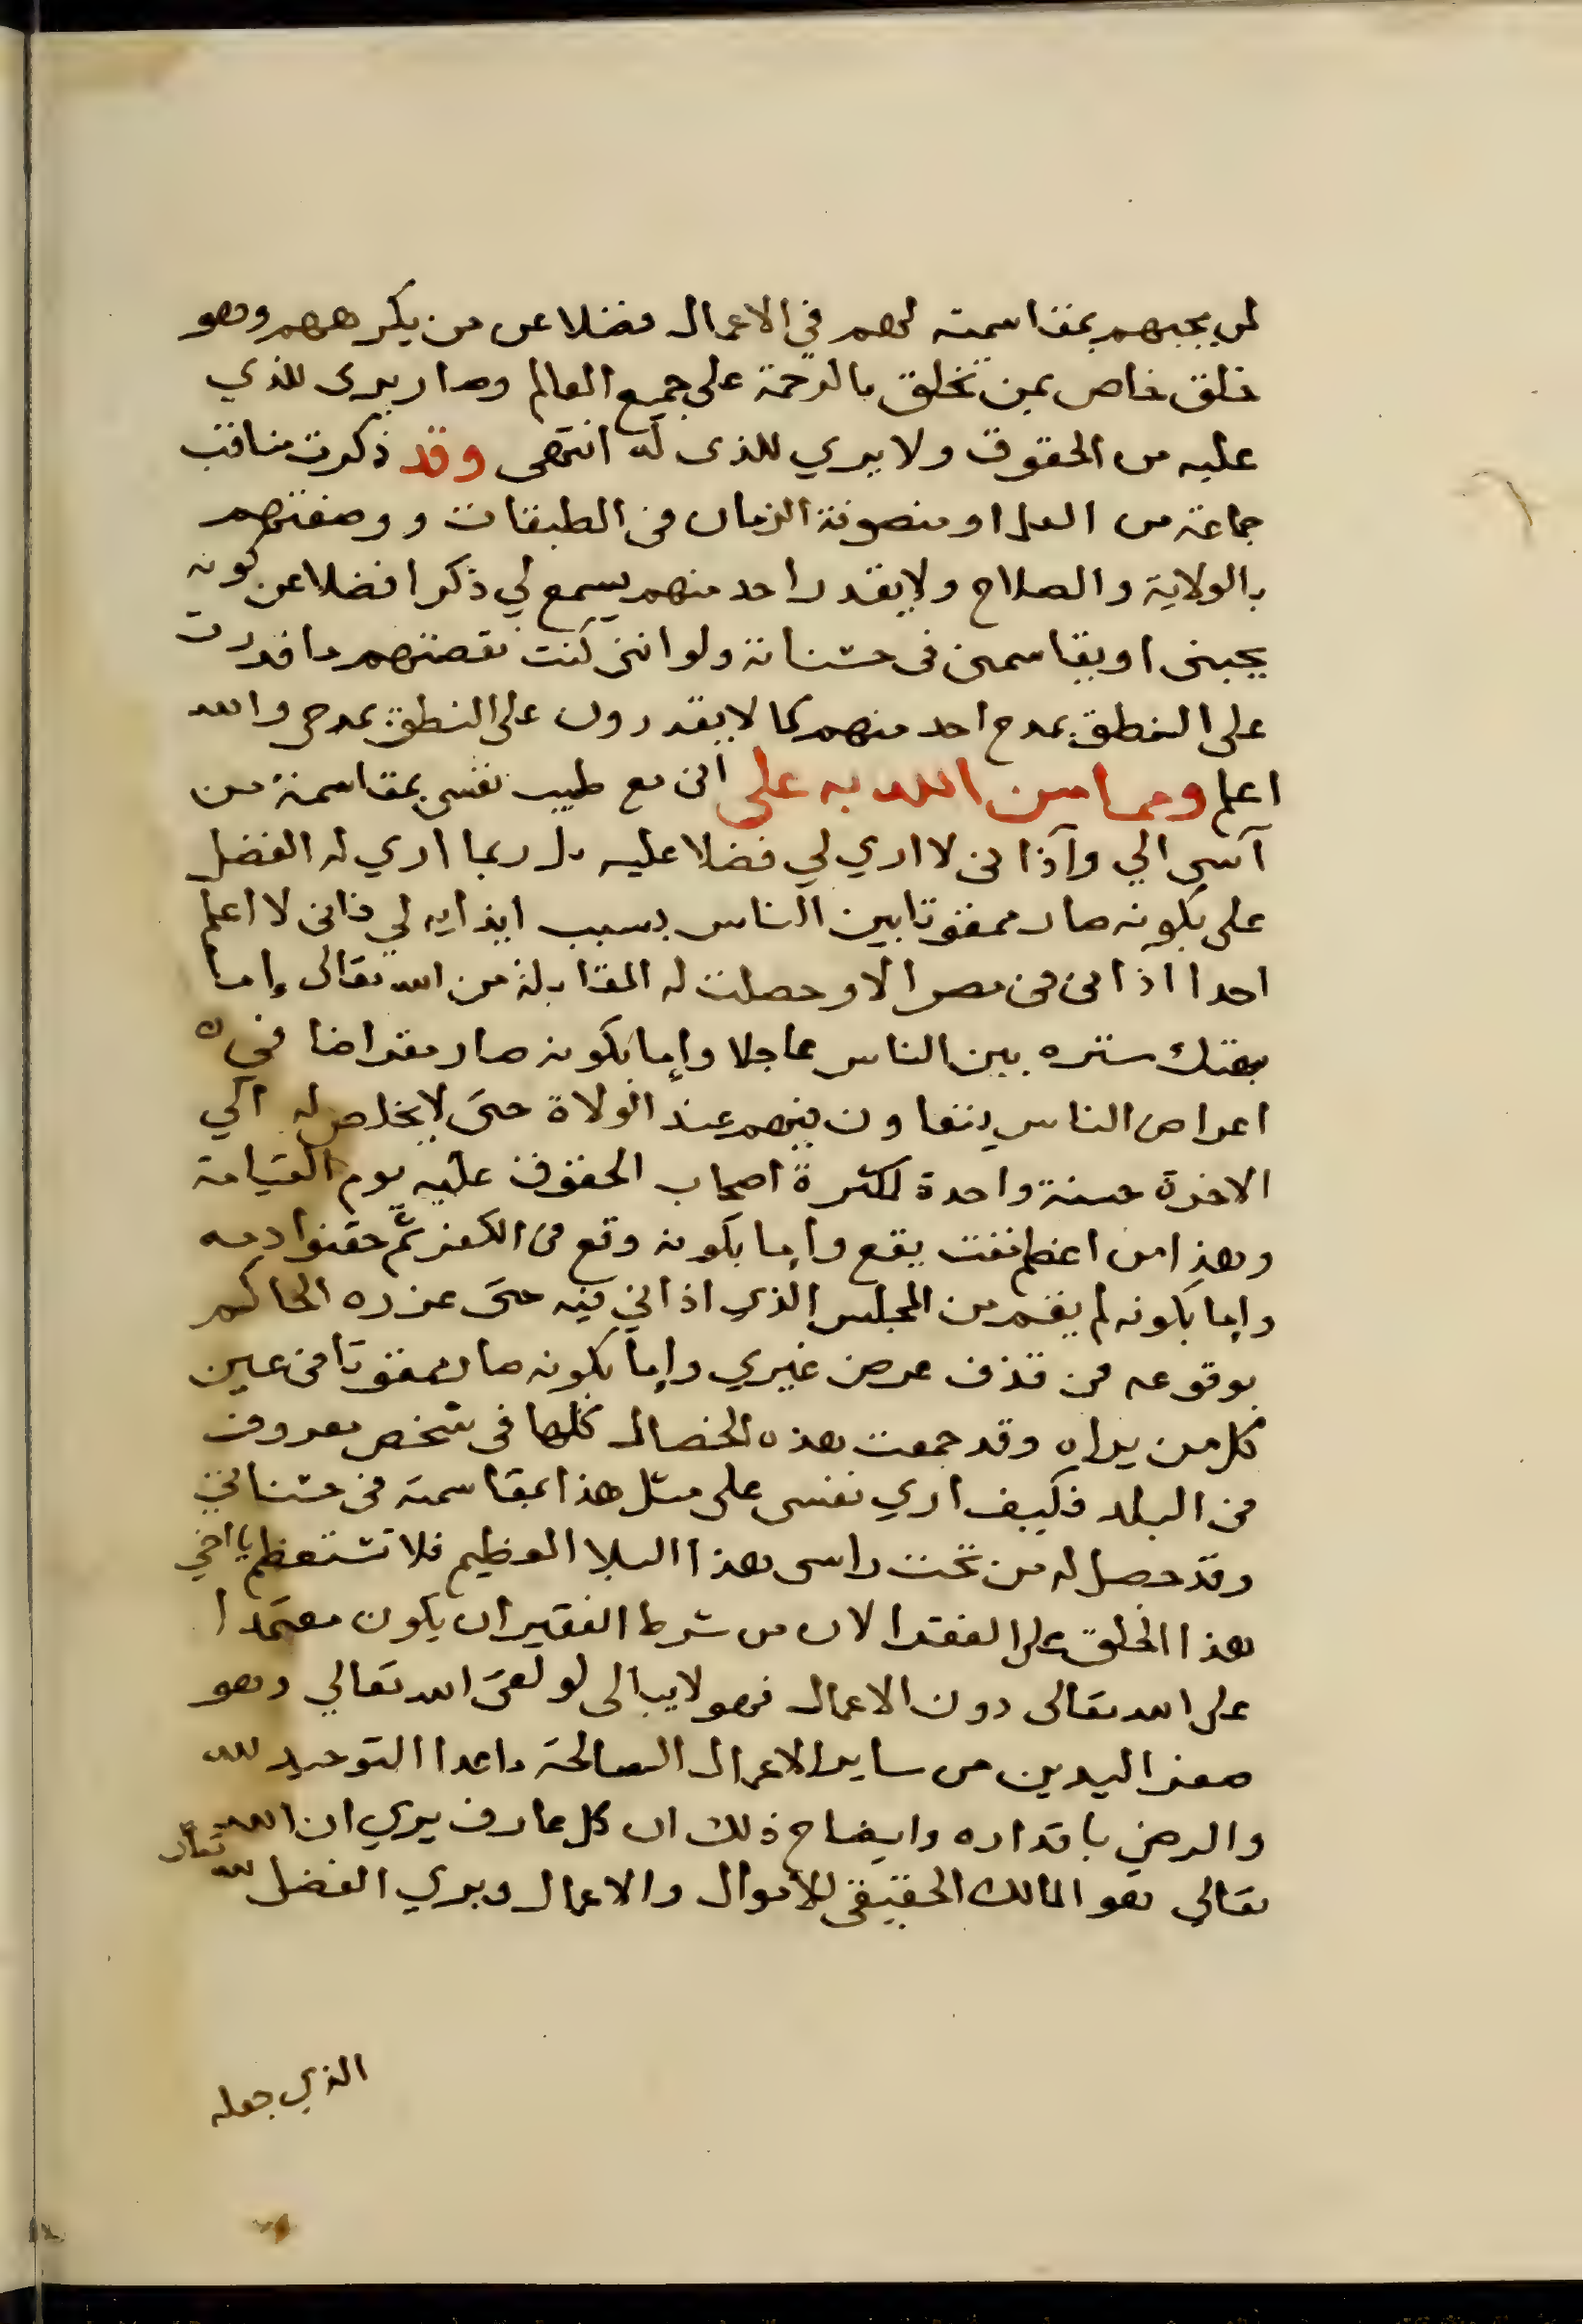 لمن يحبهم بمقاسمته لهم في الاعمال فضلا عن من يكرههم وهو
خلق خاص بمن تخلق بالرحمة على جميع العالم وصار يرى للذي
عليه من الحقوق ولا يري للذى له انتهى وقد ذكرت مناقب
جماعة من العلما ومتصوفة الزمان فى الطبقات ووصفتهم
بالولاية والصلاح ولا يقدر احد منهم يسمع لي ذكرا فضلا عن كونه
يحبنى او يقاسمنى فى حسناته ولو اننى كنت نقصتهم ما قدرت
على النطق بمدح احد منهم كما لا يقدرون على النطق بمدحى والله
اعلم ومما من الله به على انى مع طيب نفسى بمقاسمة من
آسى الي وآذانى لا اري لي فضلا عليه بل ربما اري له الفضل
على بكونه صار ممقوتا بين الناس بسبب ايذايه لي فانى لا اعلم
احدا اذانى فى مصر الا وحصلت له المقابلة من الله تعالى اما
بهتك ستره بين الناس عاجلا وإما بكونه صار مقراضا في
اعراض الناس فيهم عند الولاة حتى لا يخلص له الي
الاخرة حسنة واحدة لكثرة اصحاب الحقوق عليه يوم القيامة
وهذا من اعظم مقت يقع وإما بكونه وقع فى الكفر ثم حقنوا دمه
وإما بكونه لم يقم من المجلس الذي اذاني فيه حتى عزره الحاكم
بوقوعه فى قذف عرض غيري وإما بكونه صار ممقوتا فى عين
كل من يراه وقد جمعت هذه الخصال كلها فى شخص معروف
فى البلد فكيف اري نفسى على مثل هذا بمقاسمته فى حسناتي
وقد حصل له من تحت راسى هذا البلا العظيم فلا تستعظم يا اخي
هذا الخلق على الفقرا لان من شرط الفقير ان يكون معتمدا
على الله تعالى دون الاعمال فهو لا يبالى لو لقى الله تعالي وهو
صفر اليدين من ساير الاعمال الصالحة ماعدا التوحيد لله
والرضى باقداره وايضاح ذلك ان كل عارف يري ان الله
تعالي هو المالك الحقيقى للاموال والاعمال ويري الفضل لله تعالى
الذي جعله